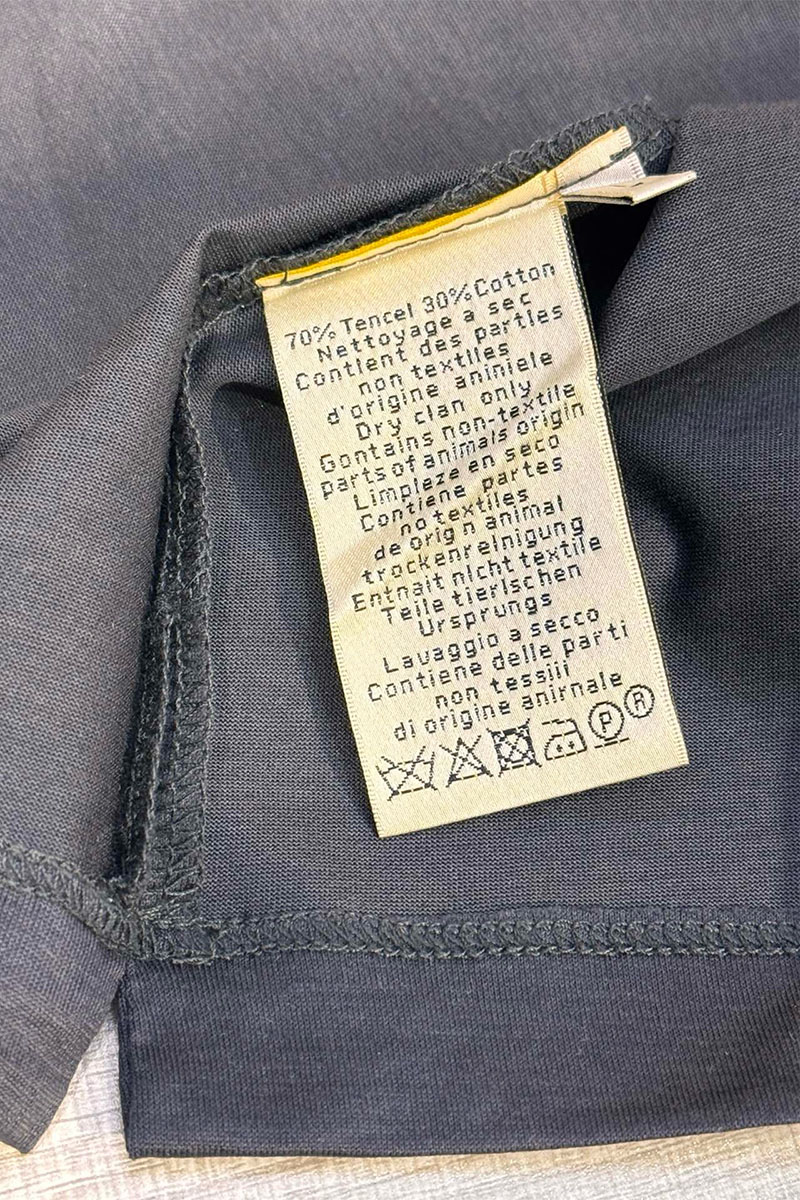 70% Tencel 30% Cotton
Nettoyage a sec
Contient des parties
non textiles
d'origine aniniele
Dry clan only
Gontains non-textile
parts of animals origin
Limpleze en seco
Contiene partes
no textiles
de orig n animal
trockenreinigung
Entnait nicht textile
Teile tierlschen
Ursprungs
Lavaggio a secco
Contiene delle parti
non tessiii
di origine anirnale
P R